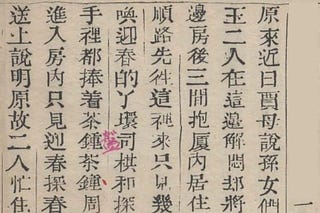 一
原來近日賈母說孫女們
玉二人在這邊解悶却將
邊房後三間抱厦內居住
順路先徃這裡來只見幾
喚迎春的丫環司棋和探
手裡都捧着茶鍾茶鍾周
進入房內只見迎春探春
送上說明原故二人忙住